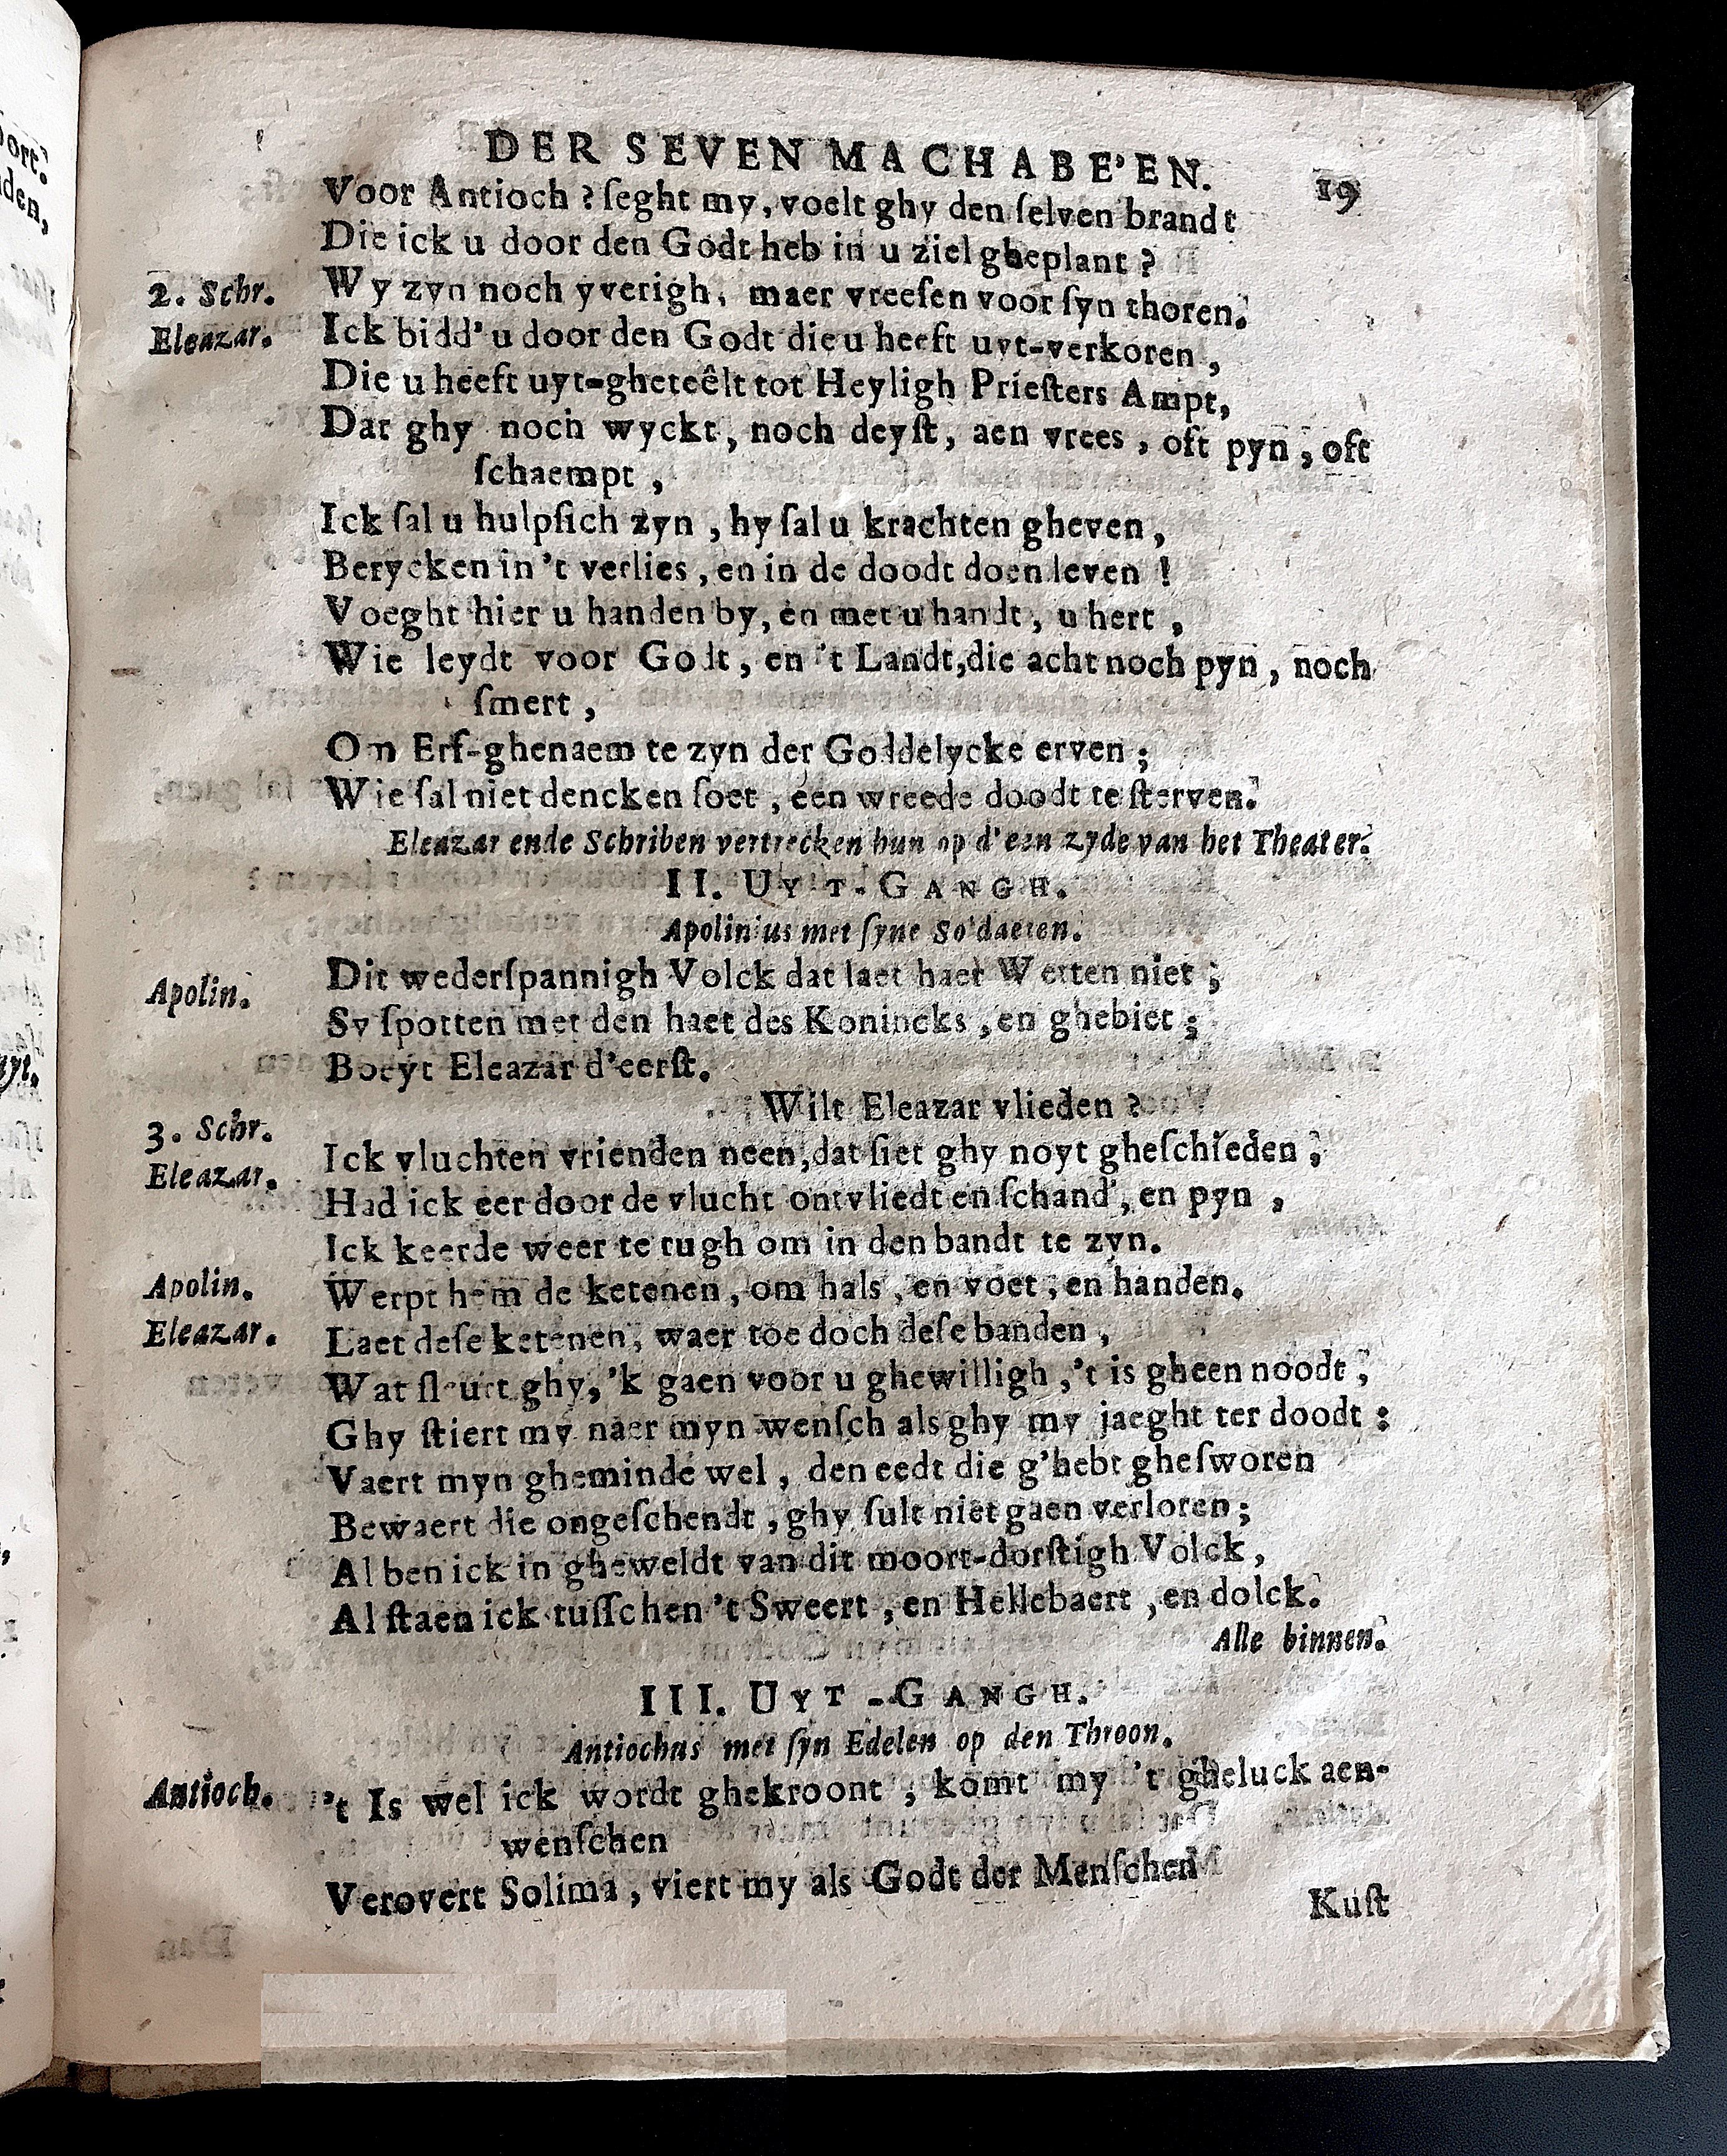 DER SEVEN MACHABE'EN. 19
Voor Antioch ? ſeght my, voelt ghy den ſelven brandt
Die ick u door den Godt heb in u ziel gheplant ?
2. Schr. Wy zyn noch yverigh, maer vreeſen voor ſyn thoren.
Eleazar. Ick bidd' u door den Godt die u heeft uyt-verkoren,
Die u heeft uyt-gheteêlt tot Heyligh Prieſters Ampt,
Dat ghy noch wyckt, noch deyſt, aen vrees, oft pyn, oft
ſchaempt,
Ick ſal u hulpſich zyn, hy ſal u krachten gheven,
Berycken in 't verlies, en in de doodt doen leven !
Voeght hier u handen by, en met u handt, u hert,
Wie leydt voor Godt, en 't Landt, die acht noch pyn, noch
ſmert,
Om Erf-ghenaem te zyn der Goddelycke erven ;
Wie ſal niet dencken ſoet, een wreede doodt te ſterven.
Eleazar ende Schriben vertrecken hun op d'een zyde van het Theater.
II. UYT-GANGH.
Apolinius met ſyne Soldaeten.
Apolin. Dit wederſpannigh Volck dat laet haer Wetten niet ;
Sy ſpotten met den haet des Konincks, en ghebiet ;
Boeyt Eleazar d'eerſt.
3. Schr. Wilt Eleazar vlieden ?
Eleazar. Ick vluchten vrienden neen, dat ſiet ghy noyt gheſchieden ;
Had ick eer door de vlucht ontvliedt en ſchand', en pyn,
Ick keerde weer te rugh om in den bandt te zyn.
Apolin. Werpt hem de ketenen, om hals, en voet, en handen.
Eleazar. Laet deſe ketenen, waer toe doch deſe banden,
Wat ſleurt ghy, 'k gaen voor u ghewilligh, 't is gheen noodt ;
Ghy ſtiert my naer myn wenſch als ghy my jaeght ter doodt :
Vaert myn gheminde wel, den eedt die g'hebt gheſworen
Bewaert die ongeſchendt, ghy ſult niet gaen verloren ;
Al ben ick in gheweldt van dit moort-dorſtigh Volck,
Al ſtaen ick tuſſchen 't Sweert, en Hellebaert, en dolck.
Alle binnen.
III. UYT-GANGH.
Antiochus met ſyn Edelen op den Throon.
Antioch. 't Is wel ick wordt ghekroont, komt my 't gheluck aen-
wenſchen
Verovert Solima, viert my als Godt der Menſchen
Kuſt